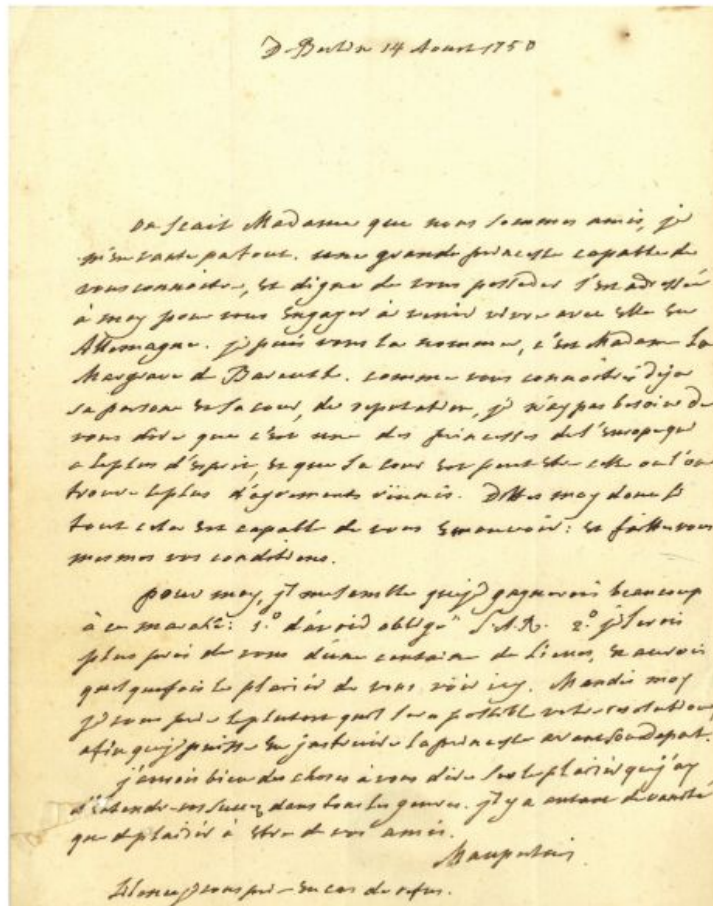 De Berlin 14 Aoust 1750
on scait Madame que nous sommes amis, je
m'en vante partout. une grande princesse capable de
vous connoitre, et digne de vous posseder s'est adressée
à moy pour vous engager à venir vivre avec elle en
Allemagne. je puis vous la nommer, c'est Madame la
Margrave de Bareuth. comme vous connoissés deja
sa personne et sa cour, de reputation, je n'ay pas besoin de
vous dire que c'est une des princesses de l'Europe qui
a le plus d'esprit, et que sa cour est peut estre celle ou l'on
trouve le plus d'agrements réunis. Dittes moy donc si
tout cela est capable de vous emouvoir: et faittes vous
mesmes vos conditions.
pour moy, il me semble que j'y gagnerois beaucoup
à ce marché: 1.º d'avoir obligé S.A.R. 2.º je serois
plus près de vous d'une centaine de lieues, et aurois
quelquefois le plaisir de vous voir icy. Mandés moy
je vous prie le plutost qu'il sera possible votre resolution,
afin que je puisse en instruire la princesse avant son depart.
j'aurois bien des choses à vous dire sur le plaisir que j'ay
d'entendre vos succez dans tous les genres. il y a autant de vanité
que de plaisir à estre de vos amis.
Maupertuis
Silence je vous prie en cas de refus.